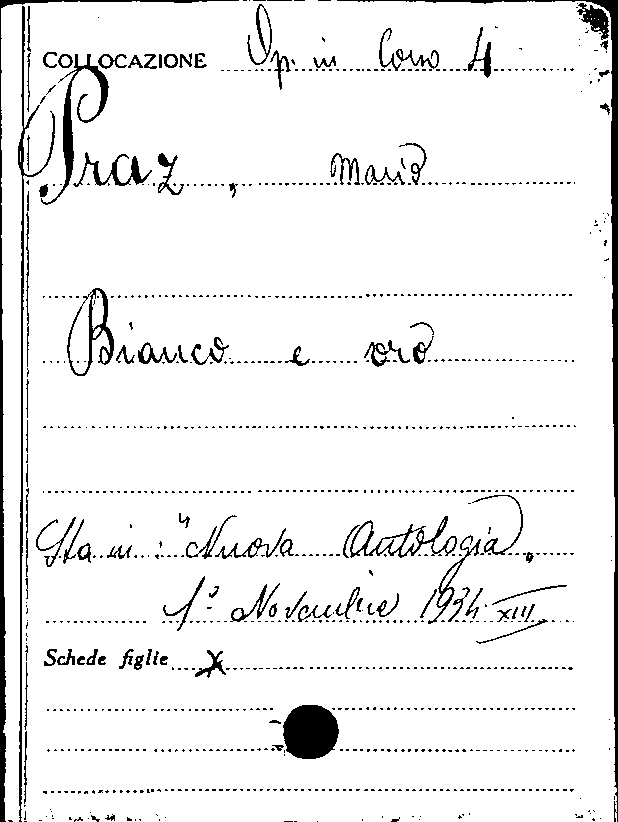 COLLOCAZIONE Op. in Corso 4
Praz, Mario
Bianco e oro
Sta in: "Nuova Antologia",
1º Novembre 1934-XIII
Schede figlie X